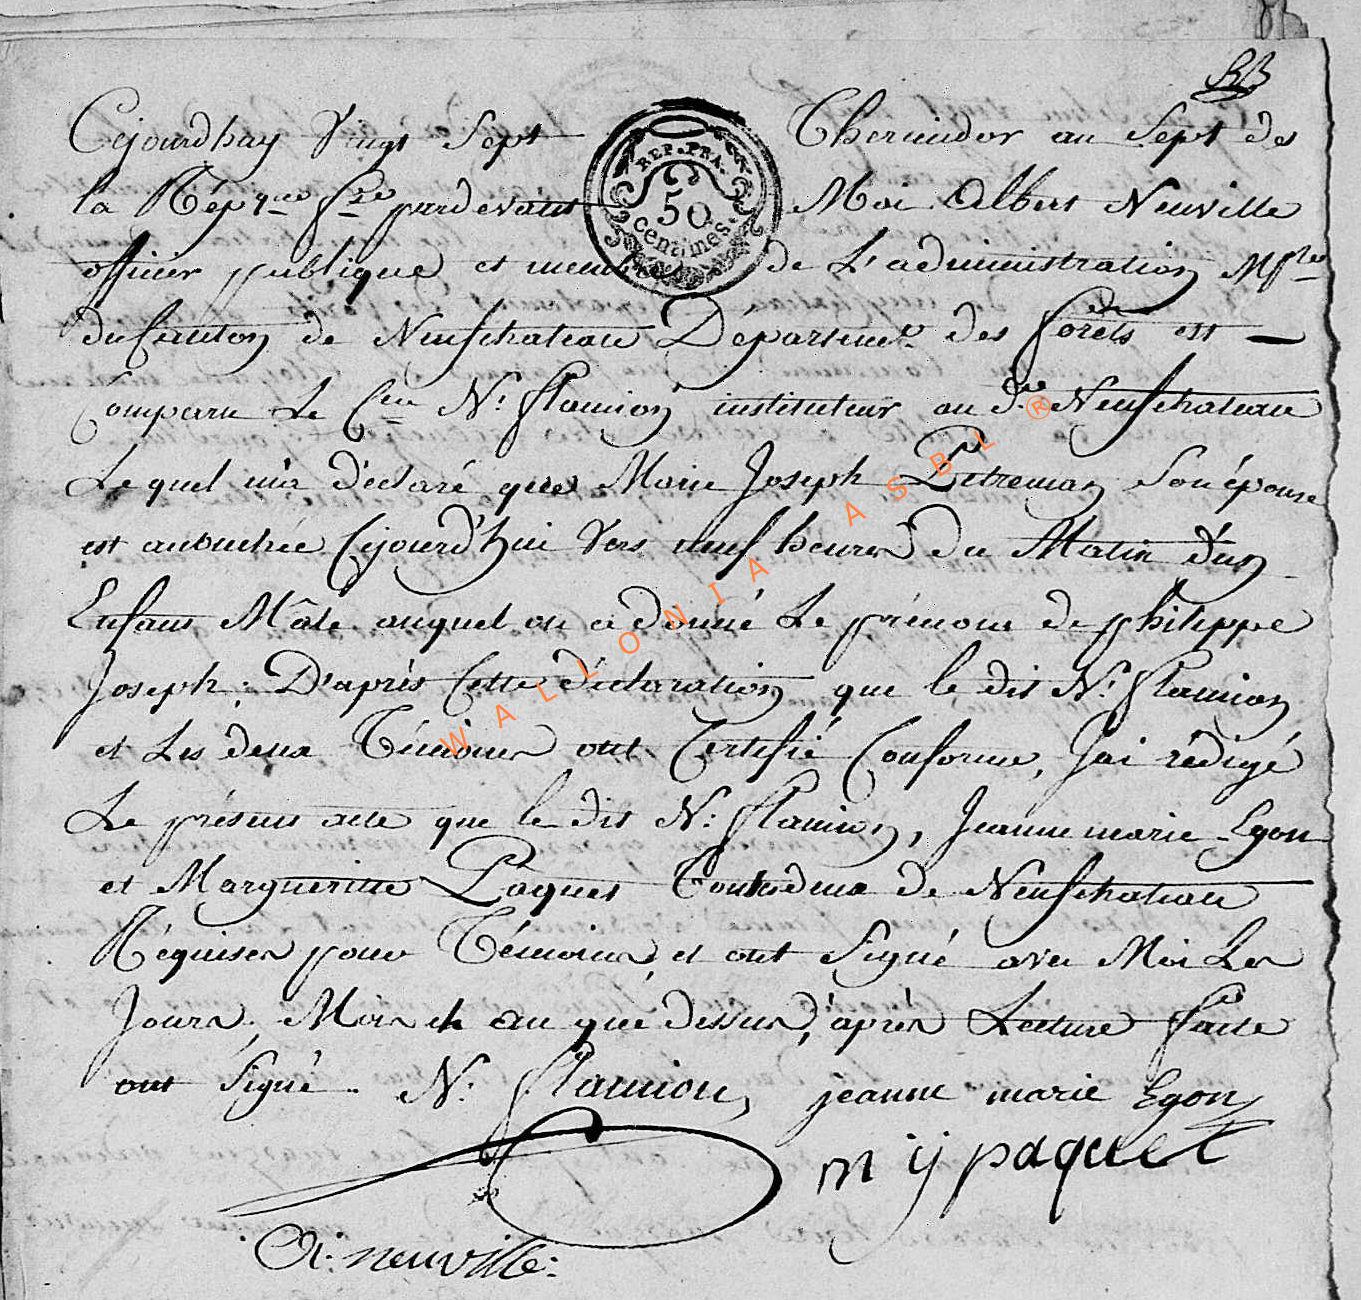 BB
Cejourdhuy Vingt Sept Thermidor an Sept de
la Répque fse pardevant Moi Albert Neuville
REP. FRA.
50
centimes.
officier publique et mem de L'administration Mple
du Canton de Neufchateau Départemt des forets est
Comparu Le Cen N: flamion instituteur au dt Neufchateau
Lequel m'a déclaré que Marie Joseph Petreman Son épouse
est accouchée Cejourd'hui Vers neuf heures du Matin d'un
Enfant Mâle auquel on a donné Le prénom de philippe
Joseph; D'après Cette déclaration que le dit N: flamion
et Les deux Témoins ont Certifié Conforme, J'ai rédigé
Le présent acte que le dit N: flamion, Jeanne marie Egon
et Margueritte Paquet Toutes deux de Neufchateau
Réquises pour Témoins, et ont Signé avec Moi Les
Jours, Mois et an que dessus, après Lecture faite
ont Signé. N: flamion, jeanne marie Egon
m j paquet
A: neuville:
WALLONIA ASBL ®